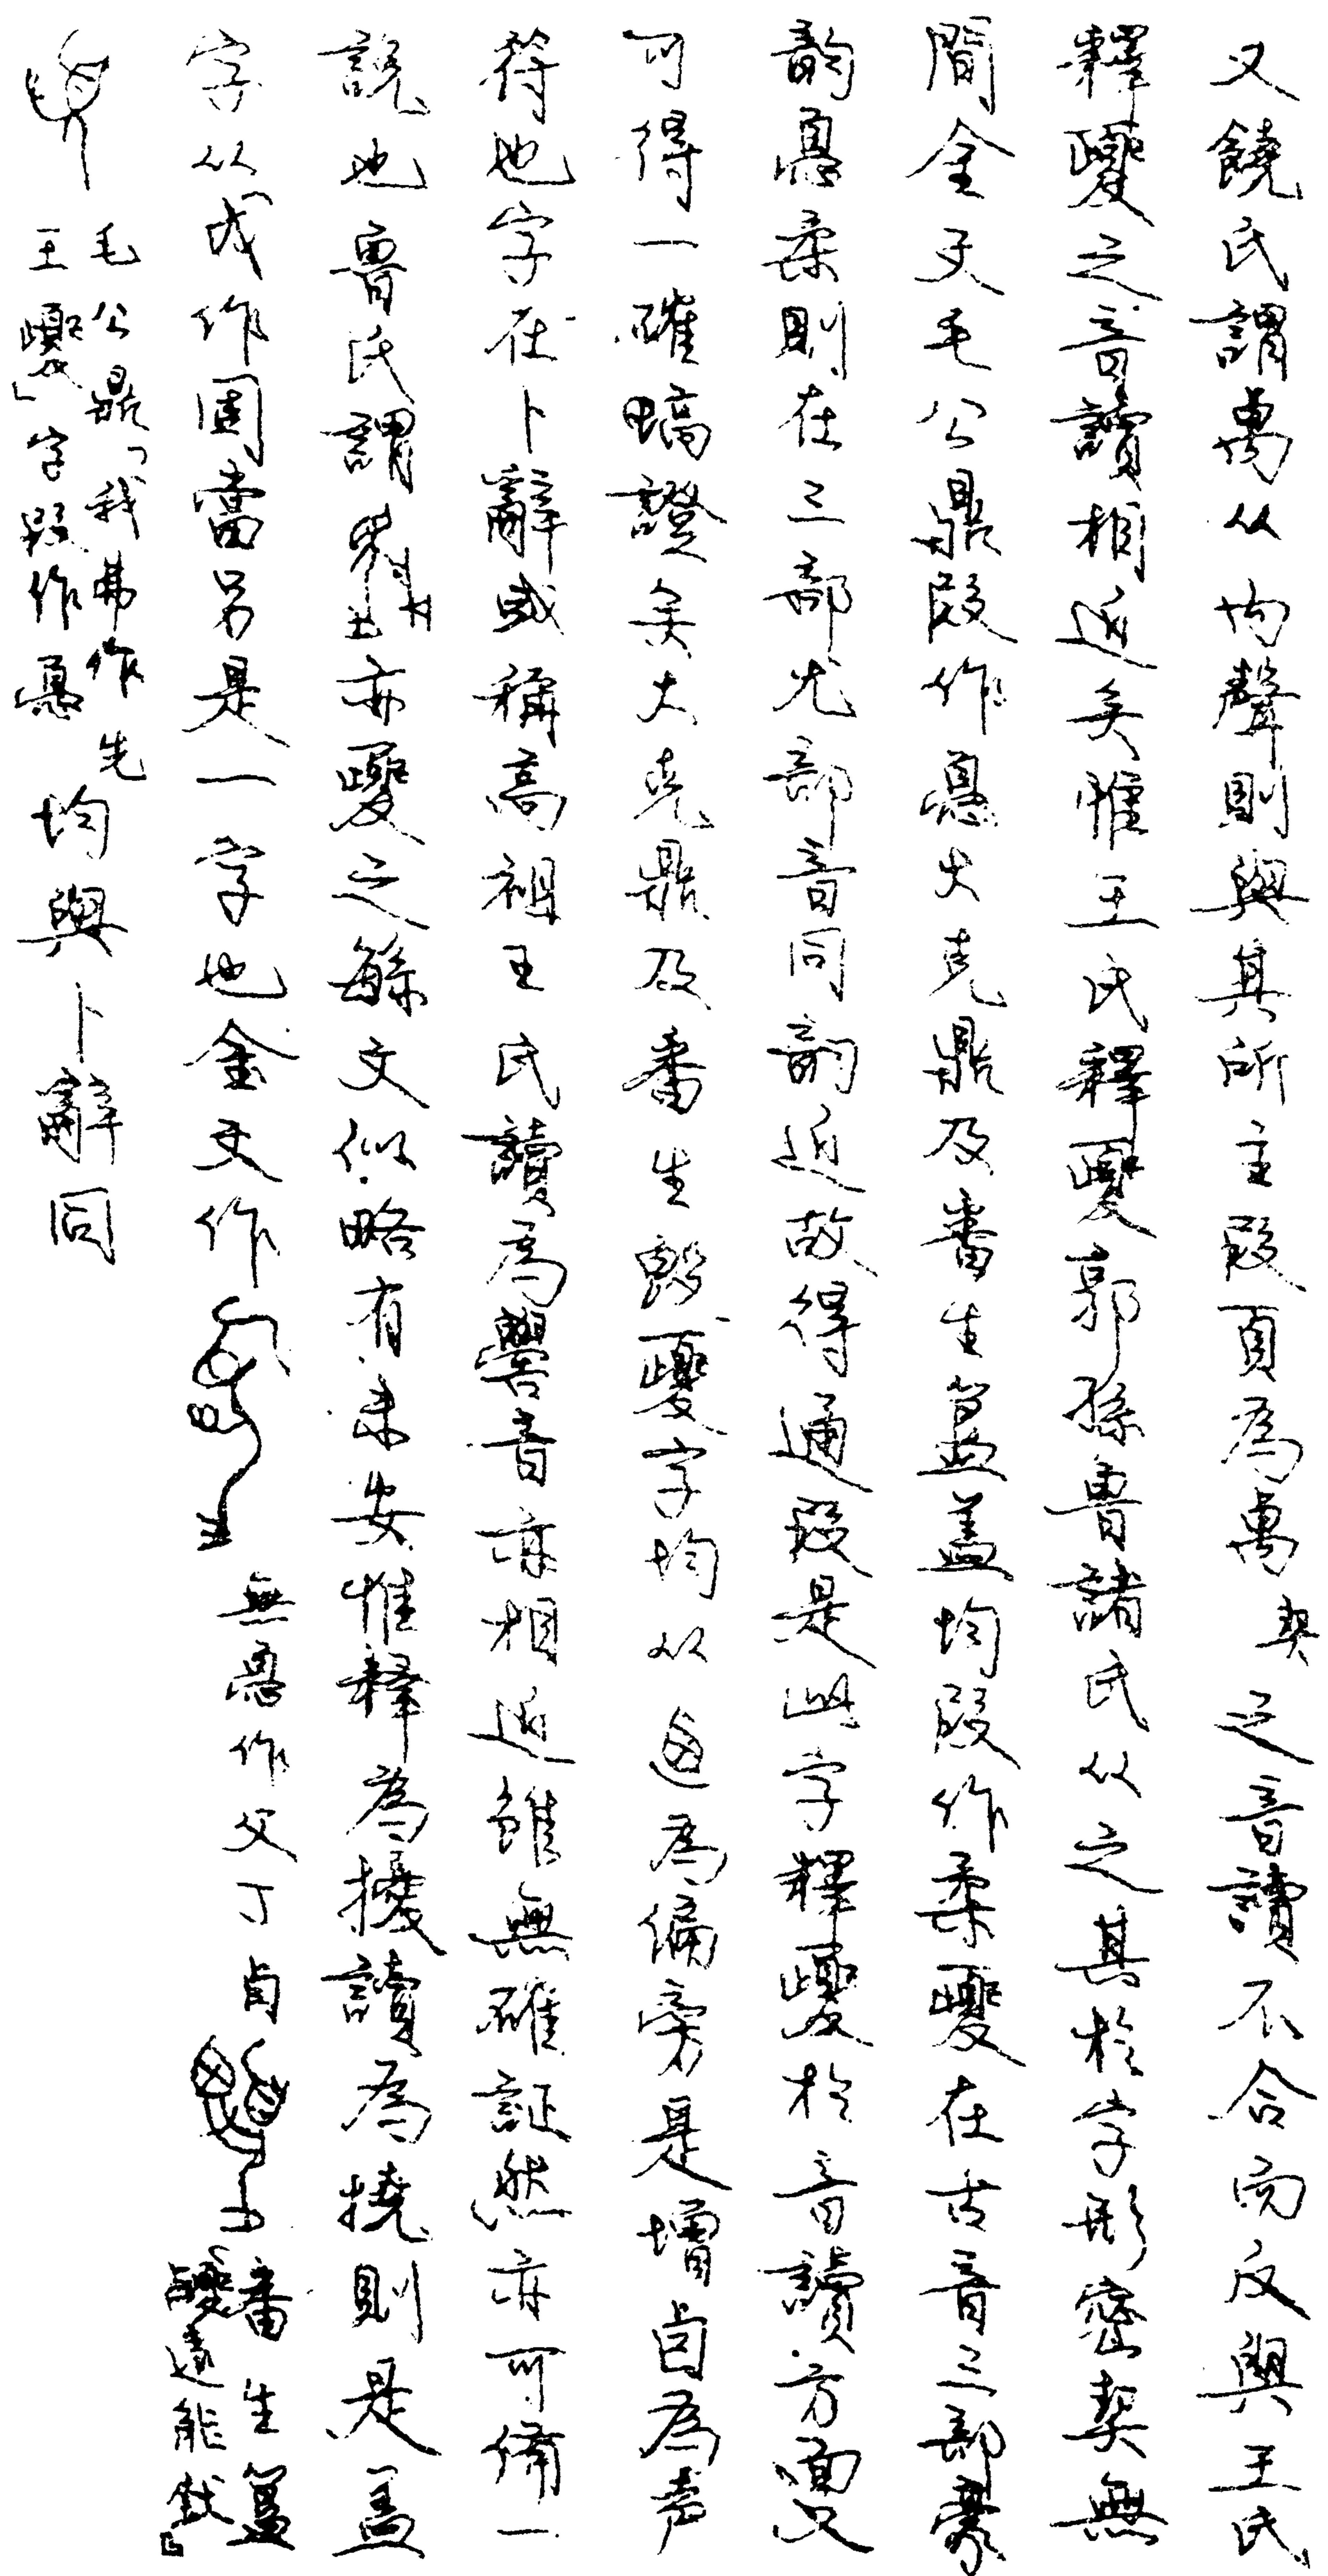 又饒氏謂禼从内聲則與其所主叚頁為禼契之音讀不合而反與王氏
釋夒之音讀相近矣惟王氏釋夒郭孫魯諸氏从之其於字形密契無
間金文毛公鼎叚作憂大克鼎及番生簋蓋均叚作柔夒在古音三部豪
韵憂柔則在三部尤部音同韵近故得通叚是此字釋夒於音讀方面又
可得一確證矣大克鼎及番生𣪘夒字均从卣為偏旁是增卣為声
符也字在卜辭或稱高祖王氏讀為嚳音亦相近雖無確証然亦可備一
說也魯氏謂亦夒之緐文似略有未安惟释為擾讀為撓則是盖
字从戉作固當另是一字也金文作 無憂作父丁卣 番生簋「夒遠能㹜」
毛公鼎「我弗作先王夒」字叚作憂 均與卜辭同